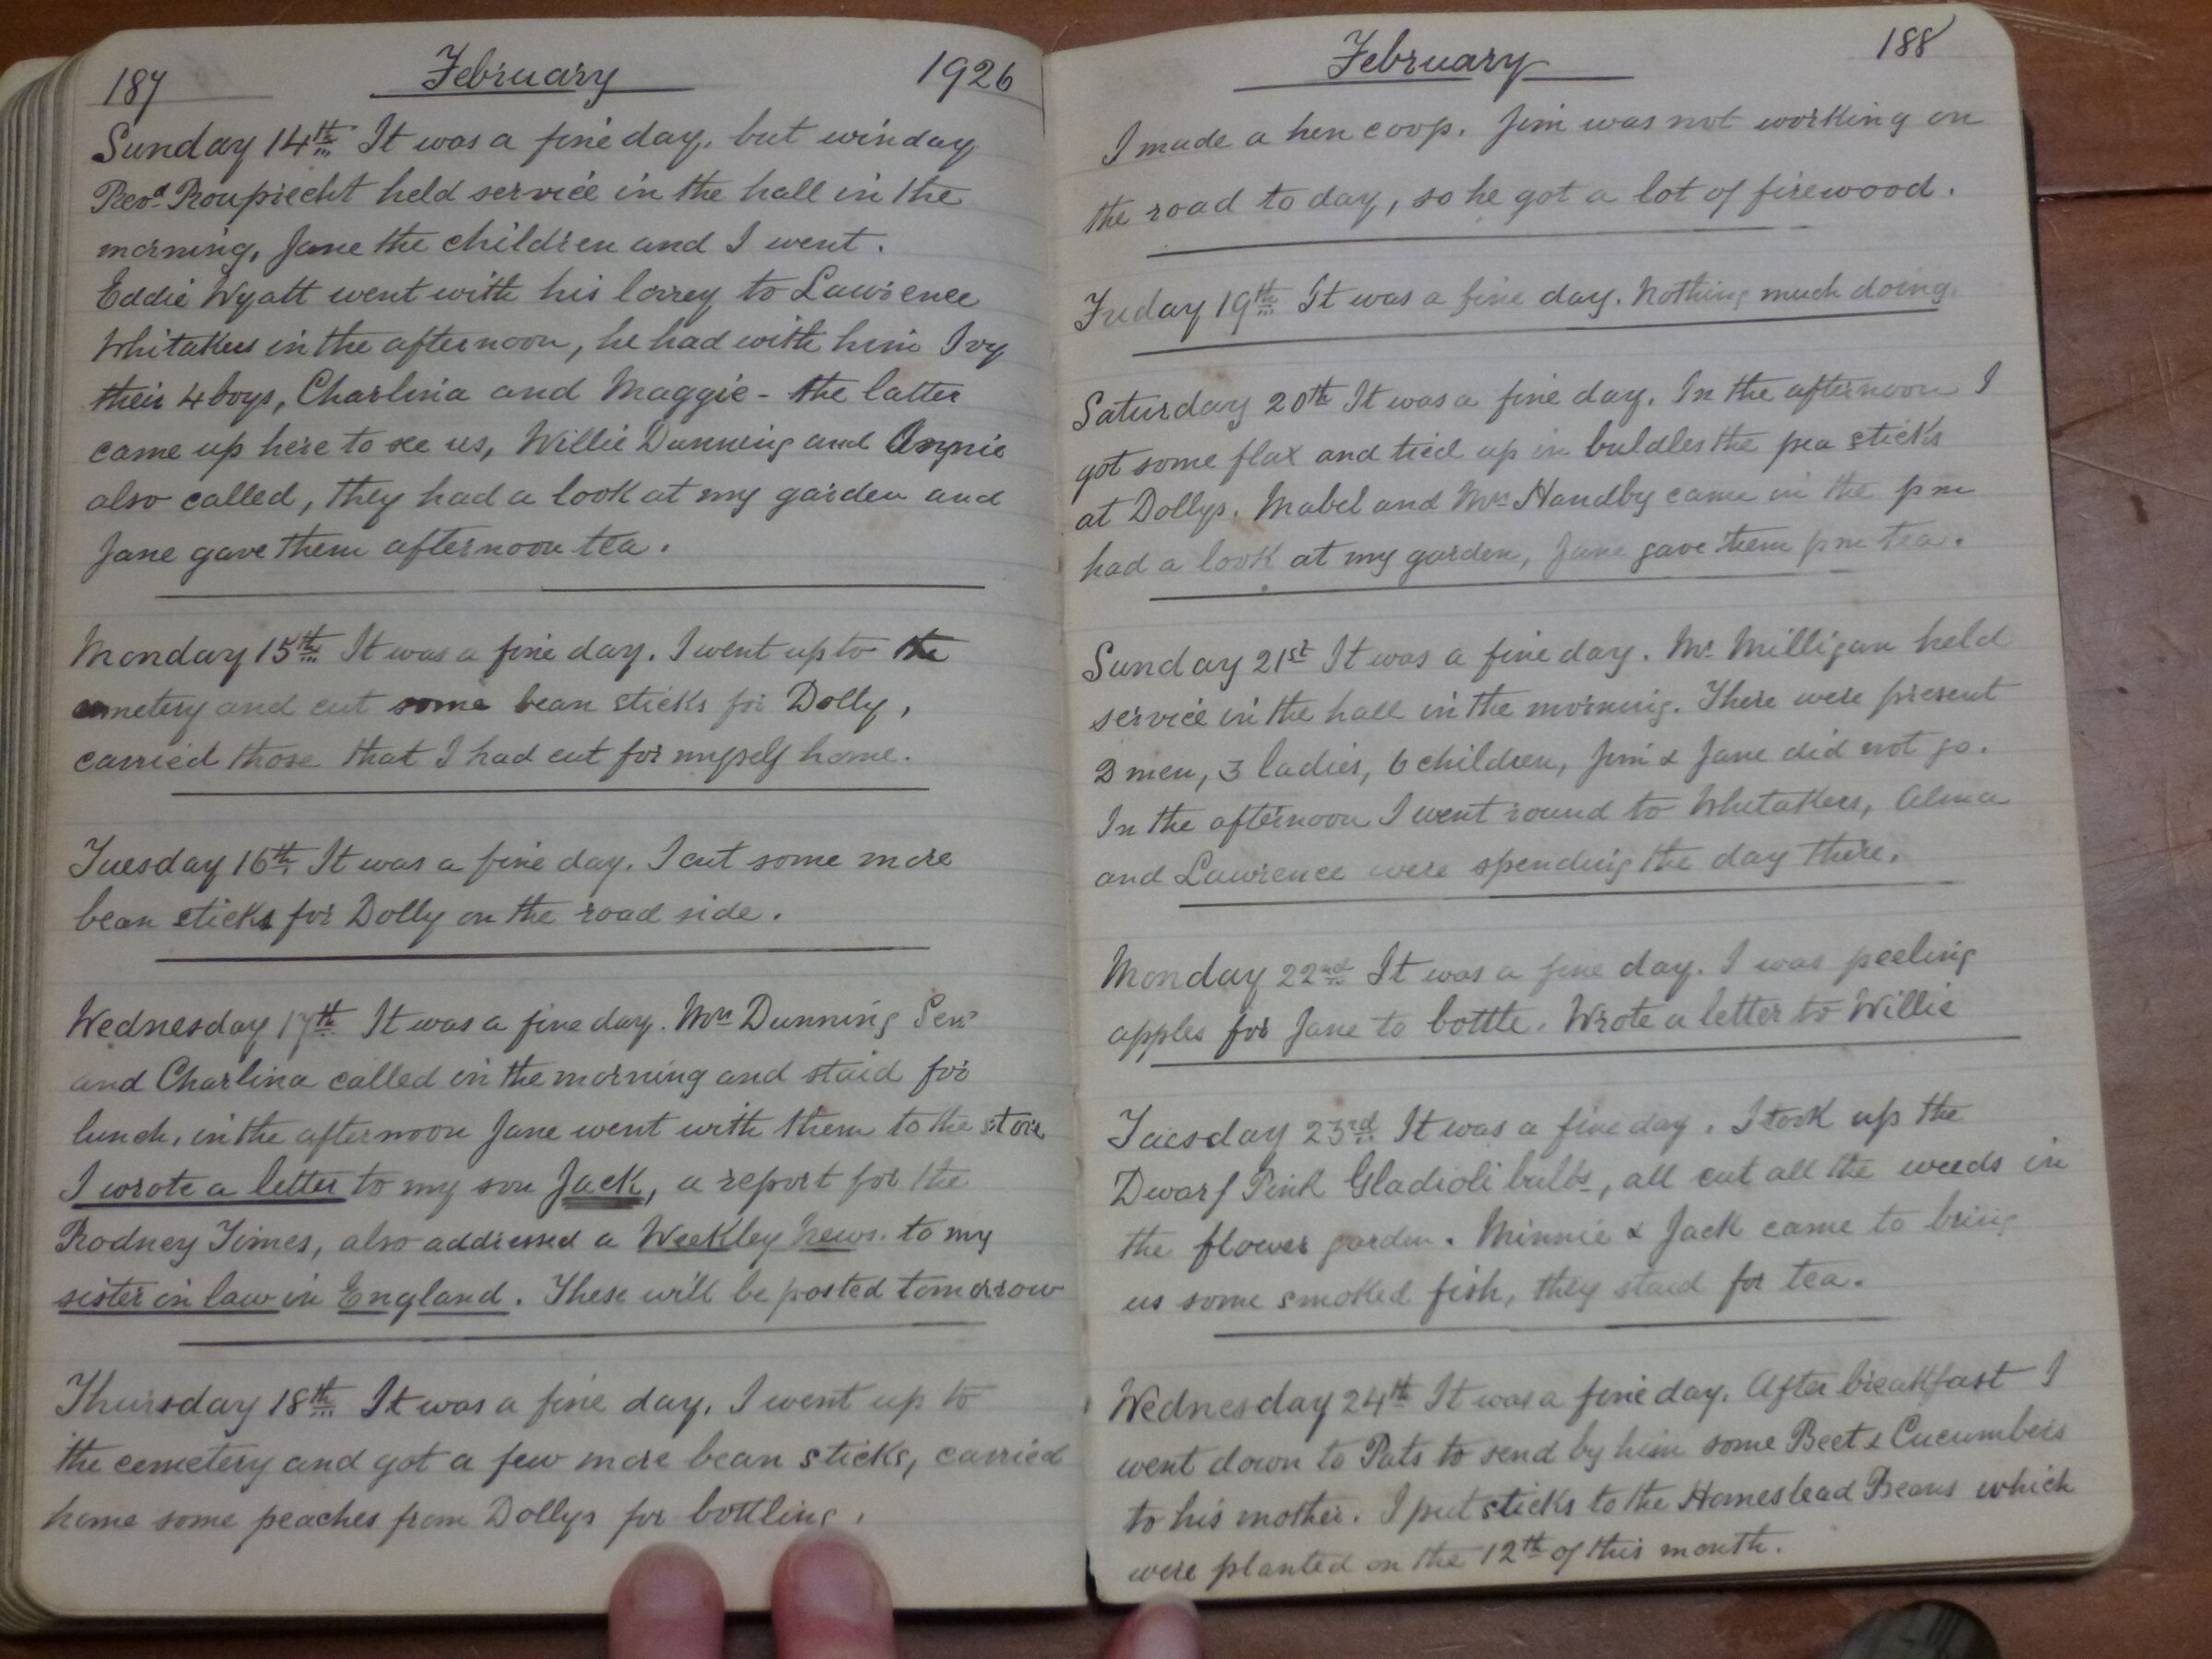 187 February 1926
Sunday 14th It was a fine day, but winday
Revd Rouprecht held service in the hall in the
morning, Jane the children and I went.
Eddie Wyatt went with his lorrey to Lawrence
Whitakers in the afternoon, he had with him Ivy
their 4 boys, Charlina and Maggie - the latter
came up here to see us, Willie Dunning and Annie
also called, they had a look at my garden and
Jane gave them afternoon tea.
Monday 15th It was a fine day. I went up to the
cemetery and cut some bean sticks for Dolly,
carried those that I had cut for myself home.
Tuesday 16th It was a fine day. I cut some more
bean sticks for Dolly on the road side.
Wednesday 17th It was a fine day. Mrs Dunning Senr
and Charlina called in the morning and staid for
lunch, in the afternoon Jane went with them to the store
I wrote a letter to my son Jack, a report for the
Rodney Times, also addressed a Weekley News. to my
sister in law in England. These will be posted tomorrow
Thursday 18th It was a fine day, I went up to
the cemetery and got a few more bean sticks, carried
home some peaches from Dollys for bottling.
February 188
I made a hen coop. Jim was not working on
the road to day, so he got a lot of firewood.
Friday 19th It was a fine day. Nothing much doing.
Saturday 20th It was a fine day. In the afternoon I
got some flax and tied up in buldles the pea sticks
at Dollys. Mabel and Mrs Handby came in the pm
had a look at my garden, Jane gave them pm tea.
Sunday 21st It was a fine day. Mr Milligan held
service in the hall in the morning. There were present
2 men, 3 ladies, 6 children, Jim & Jane did not go.
In the afternoon I went round to Whitakers, Alma
and Lawrence were spending the day there.
Monday 22nd It was a fine day. I was peeling
apples for Jane to bottle. Wrote a letter to Willie
Tuesday 23rd It was a fine day. I took up the
Dwarf Pink Gladioli bulbs, all cut all the weeds in
the flower garden. Minnie & Jack came to bring
us some smoked fish, they staid for tea.
Wednesday 24th It was a fine day. After breakfast I
went down to Pats to send by him some Beet & Cucumbers
to his mother. I put sticks to the Homestead Beans which
were planted on the 12th of this month.